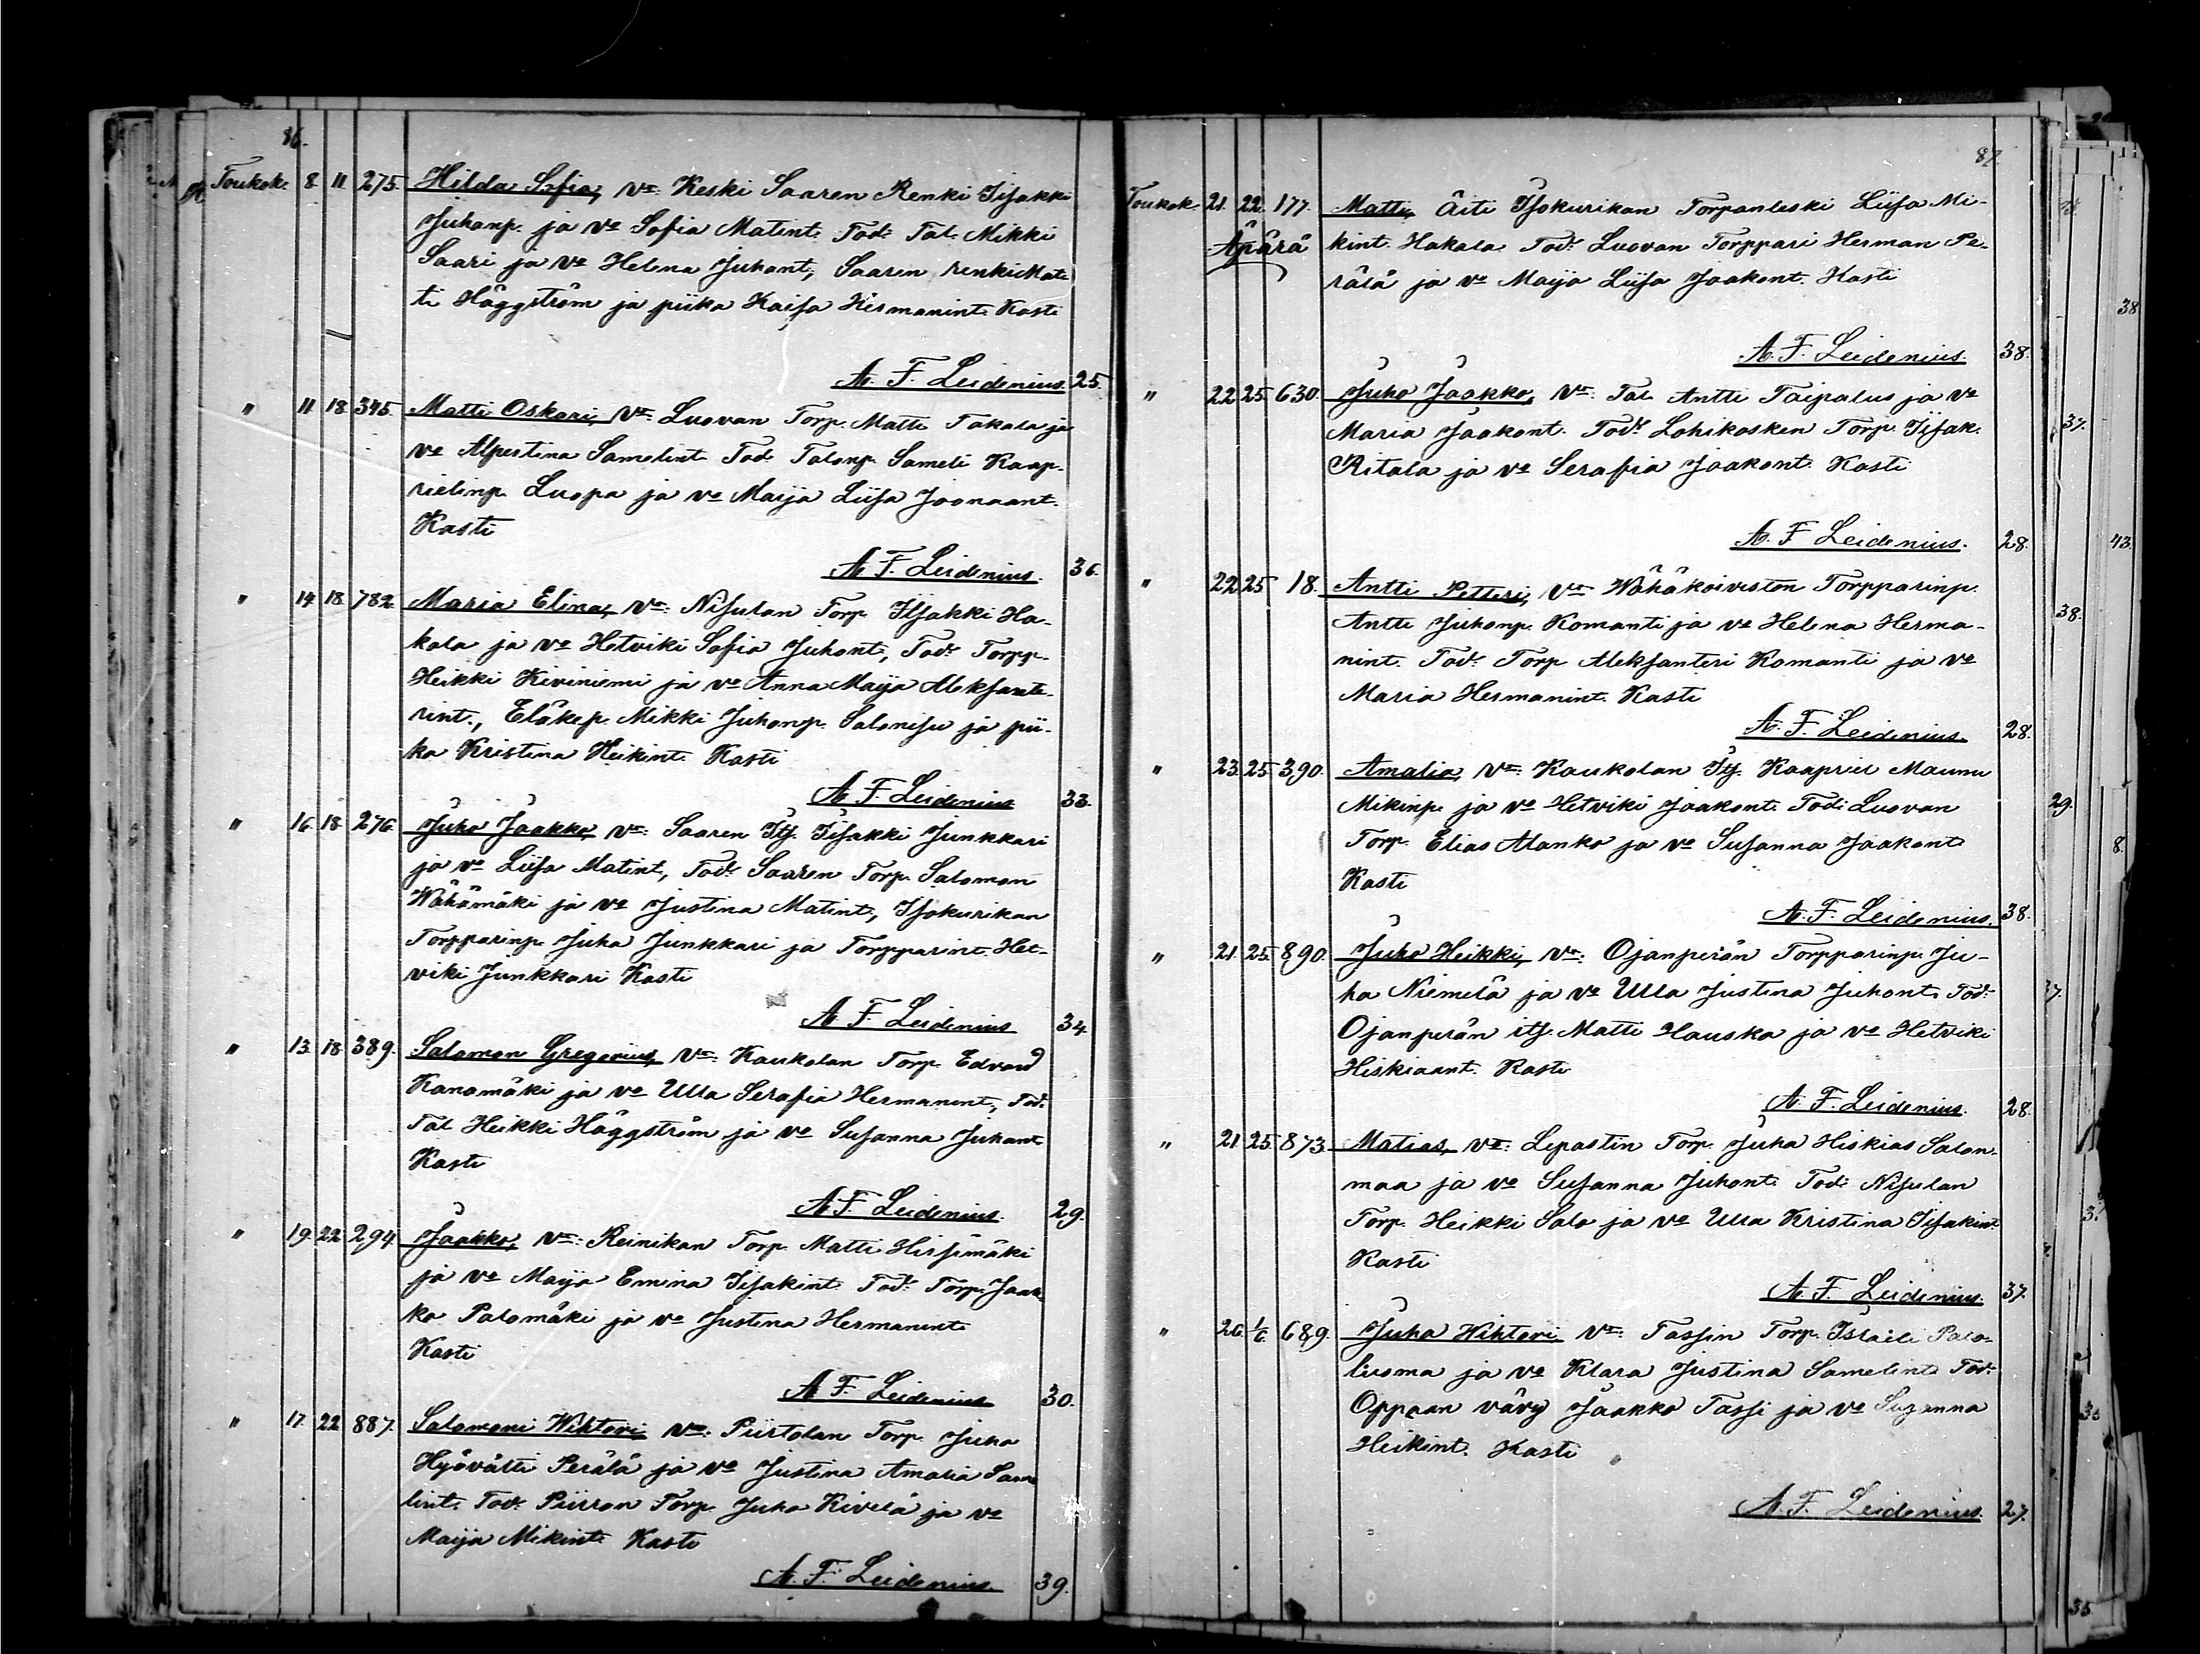 86.
Toukok. 8 11 275. Hilda Sofia, Vm: Keski Saaren Renki Iisakki
Juhonp. ja Vo Sofia Matint. Tod. Tal. Mikki
Saari ja Vo Helena Juhont, Saaren renki Mat-
ti Häggström ja piika Kaisa Hermanint. Kasti
A. F. Leidenius. 25.
" 11 18 345. Matti Oskari, Vm: Luovan Torp. Matti Takala ja
Vo Alpertina Samelint. Tod. Talonp. Sameli Kaap-
rielinp. Luopa ja Vo Maija Liisa Joonaant.
Kasti
A. F. Leidenius. 36.
" 14 18 782. Maria Elina, Vm: Nisulan Torp. Iisakki Ha-
kala ja Vo Hetviki Sofia Juhont, Tod. Torpp.
Heikki Kiviniemi ja Vo Anna Maija Aleksante-
rint., Eläkep. Mikki Juhonp. Salonisu ja pii-
ka Kristina Heikint. Kasti
A. F. Leidenius 33.
" 16 18 276. Juho Jaakko, Vm: Saaren Itj. Iisakki Junkkari
ja Vo Liisa Matint, Tod. Saaren Torp. Salomon
Wähämäki ja Vo Justina Matint, Isokurikan
Torpparinp. Juha Junkkari ja Torpparint. Het-
viki Junkkari Kasti
A. F. Leidenius 34.
" 13 18 389. Salomon Gregorius, Vm: Kaukolan Torp. Edvard
Kanamäki ja Vo Ulla Serafia Hermanint, Tod.
Tal. Heikki Häggström ja Vo Susanna Juhont
Kasti
A. F. Leidenius. 29.
" 19 22 294 Jaakko, Vm: Reinikan Torp. Matti Hirsimäki
ja Vo Maija Emina Iisakint. Tod. Torp. Jaak-
ko Palomäki ja Vo Justina Hermanint
Kasti
A. F. Leidenius 30.
" 17 22 887. Salomoni Wihtori, Vm: Piirtolan Torp. Juho
Hyövälti Perälä ja Vo Justina Amalia Same-
lint. Tod. Piirron Torp. Juho Kivelä ja Vo
Maija Mikint. Kasti
A. F. Leidenius 39.
87.
Toukok. 21. 22. 177. Matti, Äiti Isokurikan Torpanleski Liisa Mi-
Äpärä kint. Hakala Tod. Luovan Torppari Herman Pe-
rälä ja Vo Maija Liisa Jaakont. Kasti
A. F. Leidenius. 38.
" 22 25 630. Juho Jaakko, Vm: Tal. Antti Taipalus ja Vo
Maria Jaakont. Tod. Lohikosken Torp. Iisak.
Ritala ja Vo Serafia Jaakont. Kasti
A. F. Leidenius. 28.
" 22 25 18. Antti Petteri, Vm: Wähäkoiviston Torpparinp.
Antti Juhonp. Komanti ja Vo Helena Herma-
nint. Tod. Torp. Aleksanteri Komanti ja Vo
Maria Hermanint. Kasti
A. F. Leidenius. 28.
" 23. 25. 390. Amalia, Vm: Kaukolan Itj. Kaapriel Maunu
Mikinp. ja Vo Hetviki Jaakont. Tod. Luovan
Torp. Elias Alanko ja Vo Susanna Jaakont
Kasti
A. F. Leidenius. 38.
" 21. 25. 890. Juho Heikki, Vm: Ojanperän Torpparinp. Ju-
ha Niemelä ja Vo Ulla Justina Juhont. Tod.
Ojanperän itj. Matti Hauska ja Vo Hetviki
Hiskiaant. Kasti
A. F. Leidenius. 28.
" 21 25 873. Matias, Vm: Lepastin Torp. Juha Hiskias Salon-
maa ja Vo Susanna Juhont. Tod. Nisulan
Torp. Heikki Salo ja Vo Ulla Kristina Iisakint
Kasti
A. F. Leidenius. 37.
" 26. 1/6. 689. Juha Wihtori Vm: Tassin Torp. Israeli Palo-
luoma ja Vo Klara Justina Samelint. Tod.
Oppaan vävy Jaakko Tassi ja Vo Suzanna
Heikint. Kasti
A. F. Leidenius. 27.